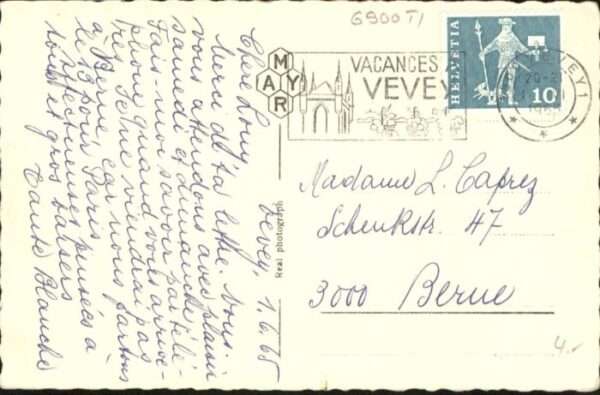 G900TI
VACANCES À
VEVEY
HELVETIA
10
VEVEY 1
MAYR
Real photograph
Vevey, 1.6.65
Chère Lony,
Merci de ta lettre. Nous
vous attendons avec plaisir
samedi et dimanche
Fais-moi savoir par télé-
phone quand vous arrive-
rez. Je ne viendrai pas
à Berne, car nous partons
le 13 pour Paris.
Affectueuses pensées à
tous et gros baisers
Tante Blanche
Madame L. Caprez
Schenkstr. 47
3000 Berne
4.-